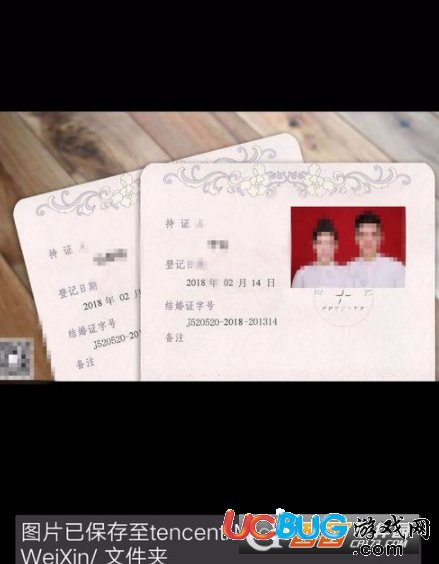 持证
登记日
2018 年 02 月 14 日
结婚证字号
J520520-2018-201314
备注
持证
登记日期
2018 年 02 月
结婚证字号
J520520-2018-201314
备注
图片已保存至tencent/
WeiXin/ 文件夹
UCBUG游戏网
.COM